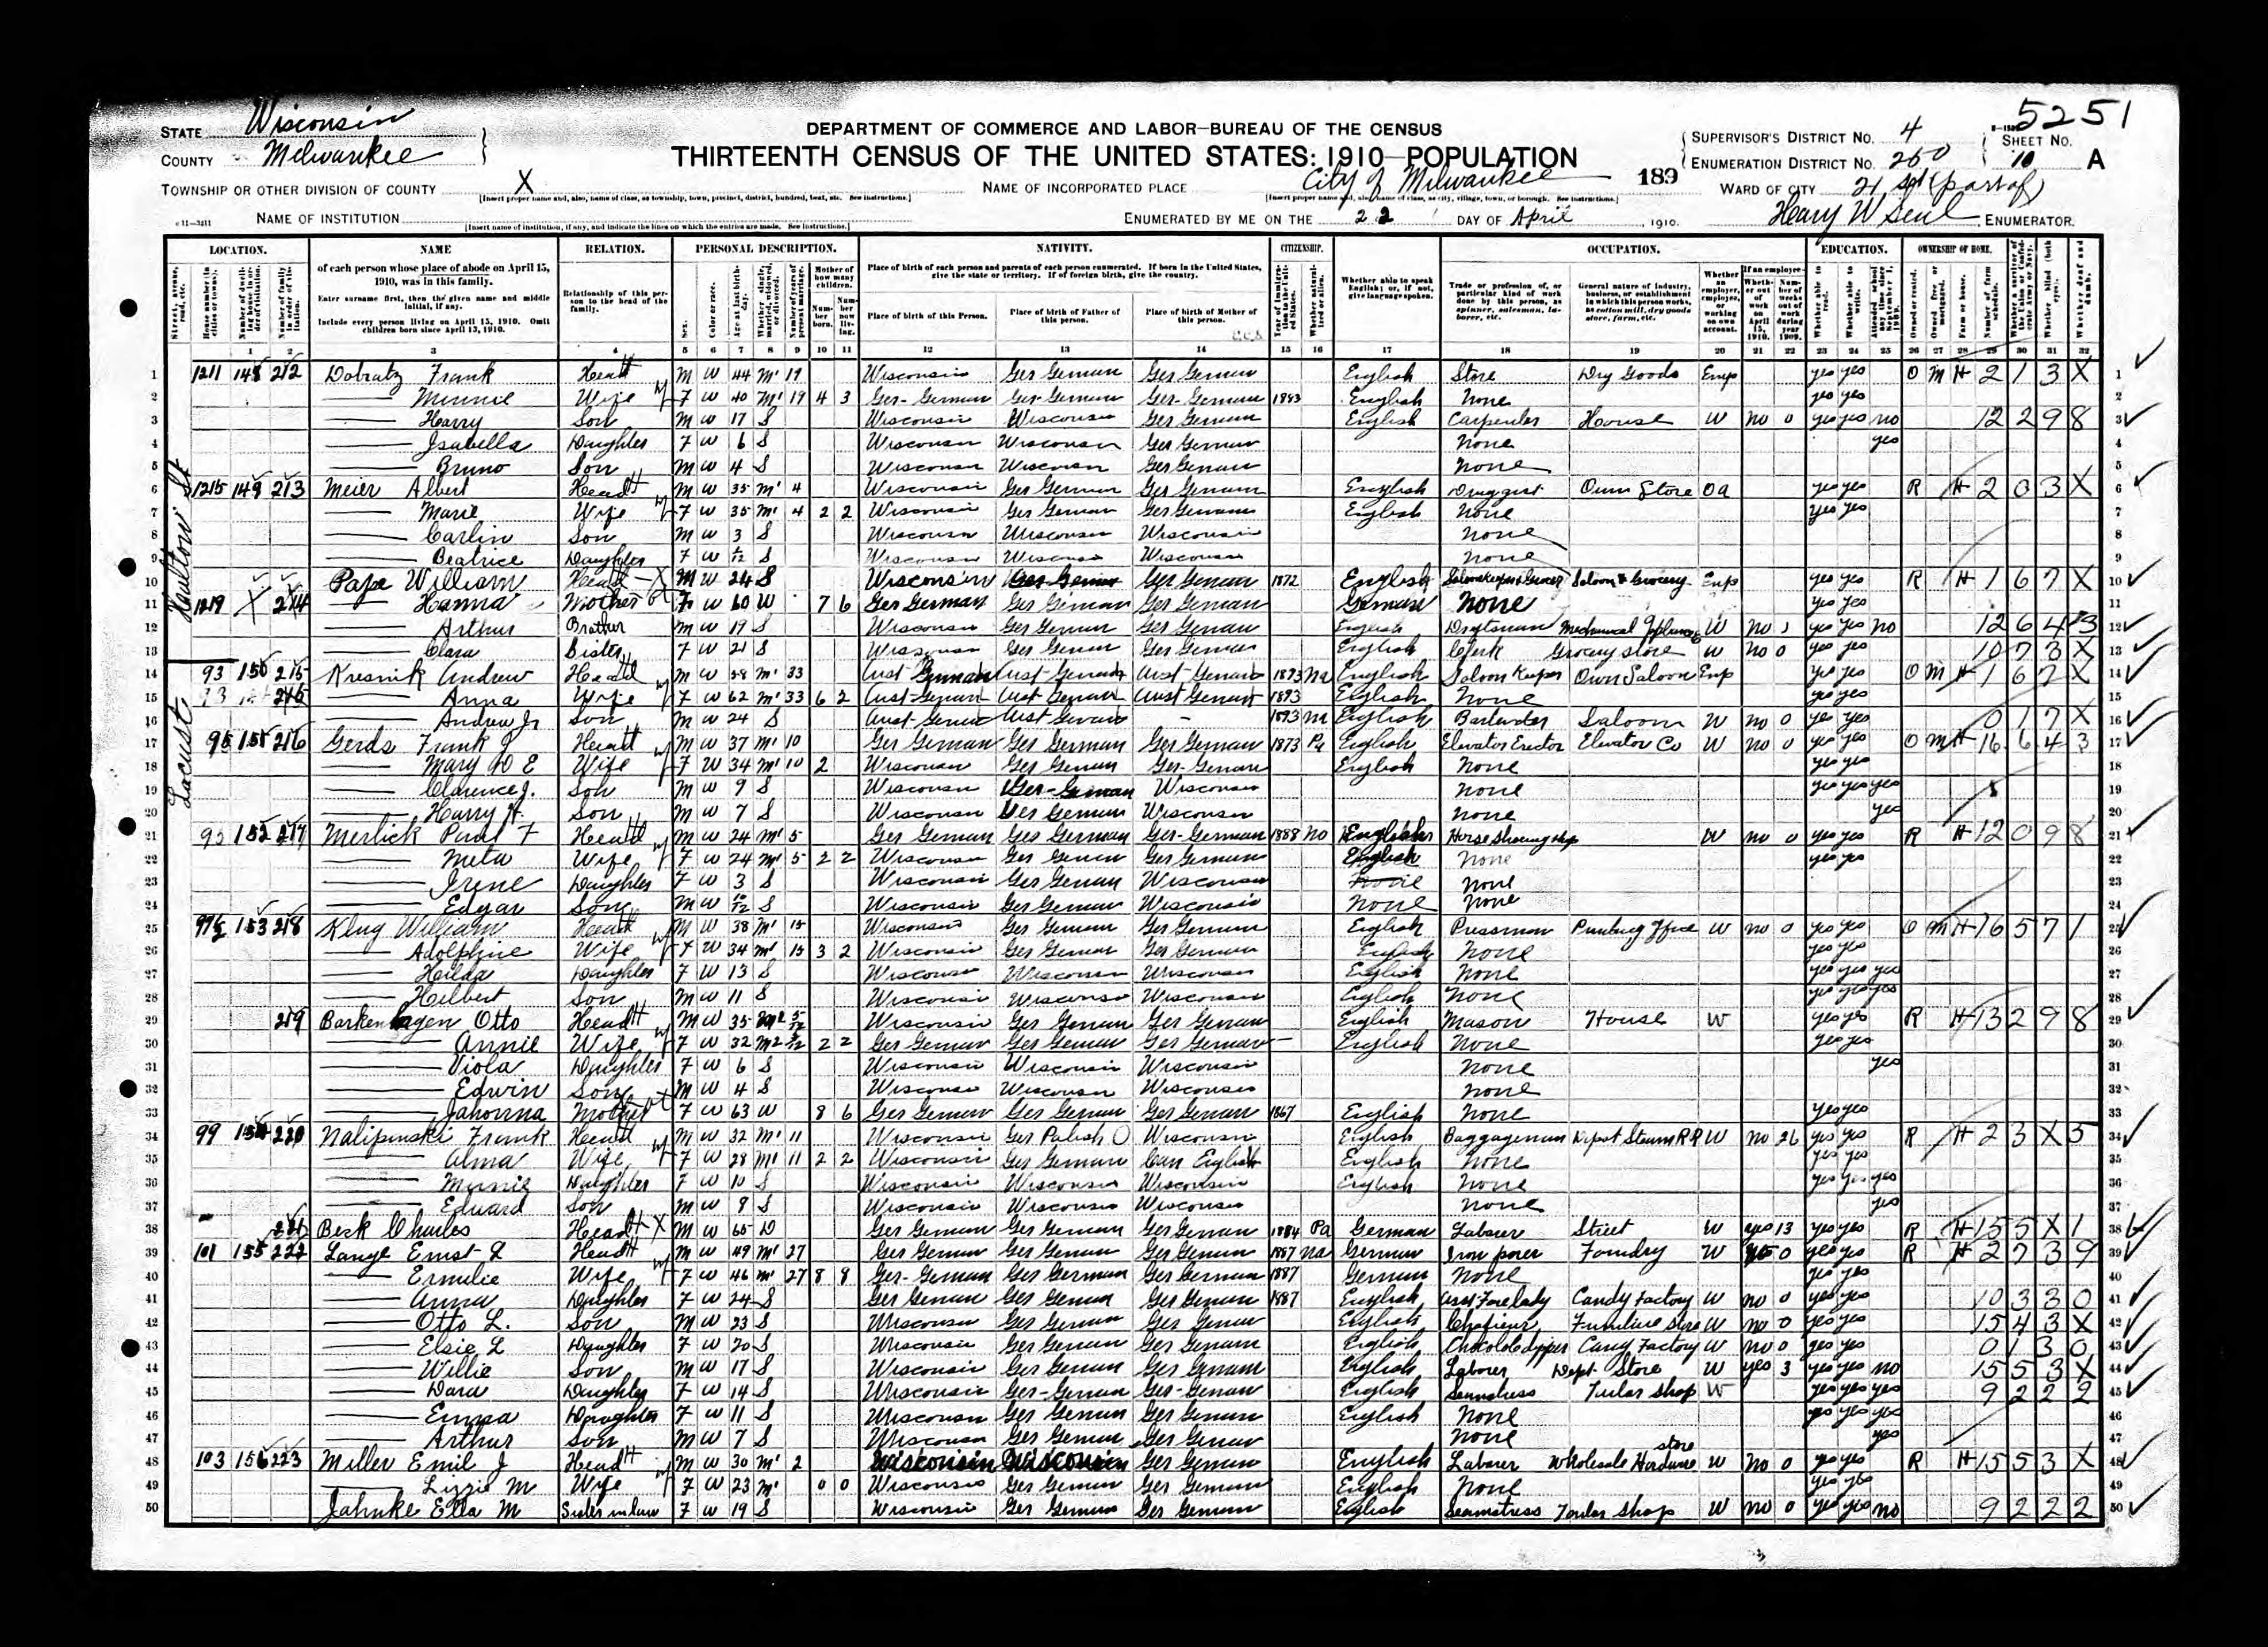 5251
STATE Wisconsin
COUNTY Milwaukee
DEPARTMENT OF COMMERCE AND LABOR—BUREAU OF THE CENSUS
THIRTEENTH CENSUS OF THE UNITED STATES: 1910—POPULATION
SUPERVISOR'S DISTRICT No. 4
ENUMERATION DISTRICT No. 250
SHEET No. 10 A
TOWNSHIP OR OTHER DIVISION OF COUNTY X
NAME OF INCORPORATED PLACE City of Milwaukee
189
WARD OF CITY 21 (part of)
NAME OF INSTITUTION
ENUMERATED BY ME ON THE 22 DAY OF April, 1910.
Henry W , ENUMERATOR.
LOCATION. NAME RELATION. PERSONAL DESCRIPTION. NATIVITY. CITIZENSHIP. OCCUPATION. EDUCATION. OWNERSHIP OF HOME.
of each person whose place of abode on April 15, 1910, was in this family.
Enter surname first, then the given name and middle initial, if any.
Include every person living on April 15, 1910. Omit children born since April 15, 1910.
Relationship of this person to the head of the family.
Place of birth of each person and parents of each person enumerated. If born in the United States, give the state or territory. If of foreign birth, give the country.
Place of birth of this Person. Place of birth of Father of this person. Place of birth of Mother of this person.
Whether able to speak English; or, if not, give language spoken.
1 2 3 4 5 6 7 8 9 10 11 12 13 14 15 16 17 18 19 20 21 22 23 24 25 26 27 28 29 30 31 32
Locust
1 1211 148 212 Dobratz Frank Head M W 44 M1 19 Wisconsin Ger German Ger German English Store Dry Goods Emp yes yes O M H 2 1 3 X
2 Minnie Wife F W 40 M1 19 4 3 Ger-German Ger-German Ger-German 1883 English None yes yes
3 Harry Son M W 17 S Wisconsin Wisconsin Ger German English Carpenter House W no 0 yes yes no 12 2 9 8
4 Isabella Daughter F W 6 S Wisconsin Wisconsin Ger German None yes
5 Bruno Son M W 4 S Wisconsin Wisconsin Ger German None
6 1215 149 213 Meier Albert Head M W 35 M1 4 Wisconsin Ger German Ger German English Druggist Own Store Oa yes yes R H 2 0 3 X
7 Marie Wife F W 35 M1 4 2 2 Wisconsin Ger German Ger German English None yes yes
8 Carlin Son M W 3 S Wisconsin Wisconsin Wisconsin None
9 Beatrice Daughter F W S Wisconsin Wisconsin Wisconsin None
10 Pape William Head X M W 24 S Wisconsin Ger German Ger German 1872 English Saloonkeeper & Grocer Saloon & Grocery Emp yes yes R H 1 6 7 X
11 1219 X 214 Hanna Mother F W 60 W 7 6 Ger German Ger German Ger German German None yes yes
12 Arthur Brother M W 19 S Wisconsin Ger German Ger German English Draftsman Mechanical W no yes yes no 12 6 4 3
13 Clara Sister F W 21 S Wisconsin Ger German Ger German English Clerk Grocery store W no 0 yes yes 10 7 3 X
14 93 150 215 Kresnik Andrew Head M W 58 M1 33 Aust German Aust-German Aust-German 1893 na English Saloon Keeper Own Saloon Emp yes yes O M H 1 6 7 X
15 215 Anna Wife F W 62 M1 33 6 2 Aust-German Aust German Aust German 1893 English None yes yes
16 Andrew Jr Son M W 24 S Aust-German Aust German - 1893 na English Bartender Saloon W no 0 yes yes 0 1 7 X
17 95 151 216 Gerds Frank J Head M W 37 M1 10 Ger German Ger German Ger German 1873 Pa English Elevator Erector Elevator Co W no 0 yes yes O M H 16 6 4 3
18 Mary D E Wife F W 34 M1 10 2 Wisconsin Ger German Ger-German English None yes yes
19 Clarence J. Son M W 9 S Wisconsin Ger-German Wisconsin None yes yes yes
20 Harry H. Son M W 7 S Wisconsin Ger German Wisconsin None yes
21 95 152 217 Merlick Paul F Head M W 24 M1 5 Ger German Ger German Ger-German 1888 no English Horse Shoeing shop W no 0 yes yes R H 12 0 9 8
22 Meta Wife F W 24 M1 5 2 2 Wisconsin Ger German Ger German English None yes yes
23 Irene Daughter F W 3 S Wisconsin Ger German Wisconsin None None
24 Edgar Son M W 10/12 S Wisconsin Ger German Wisconsin None None
25 153 218 Klug William Head M W 38 M1 15 Wisconsin Ger German Ger German English Pressman Printing Office W no 0 yes yes O M H 16 5 7 1
26 Adolphine Wife F W 34 M1 15 3 2 Wisconsin Ger German Ger German English None yes yes
27 Hilda Daughter F W 13 S Wisconsin Wisconsin Wisconsin English None yes yes yes
28 Hilbert Son M W 11 S Wisconsin Wisconsin Wisconsin English None yes yes yes
29 219 Barkenhagen Otto Head M W 35 M2 5/12 Wisconsin Ger German Ger German English Mason House W yes yes R H 13 2 9 8
30 Annie Wife F W 32 M2 5/12 2 2 Ger German Ger German Ger German English None yes yes
31 Viola Daughter F W 6 S Wisconsin Wisconsin Wisconsin None yes
32 Edwin Son M W 4 S Wisconsin Wisconsin Wisconsin None
33 Mother F W 63 W 8 6 Ger German Ger German Ger German 1867 English None yes yes
34 99 154 220 Nalipinski Frank Head M W 32 M1 11 Wisconsin Ger Polish Wisconsin English Baggageman Depot Steam RR W no 26 yes yes R H 2 3 X 5
35 Alma Wife F W 28 M1 11 2 2 Wisconsin Ger German Can English English None yes yes
36 Minnie Daughter F W 10 S Wisconsin Wisconsin Wisconsin English None yes yes yes
37 Edward Son M W 8 S Wisconsin Wisconsin Wisconsin None yes
38 221 Beck Charles Head X M W 65 D Ger German Ger German Ger German 1884 Pa German Laborer Street W yes 13 yes yes R H 15 5 X 1
39 101 155 222 Lange Ernst L Head M W 49 M1 27 Ger German Ger German Ger German 1887 na German Iron porer Foundry W no 0 yes yes R H 2 7 3 9
40 Emilie Wife F W 46 M1 27 8 8 Ger-German Ger German Ger German 1887 German None yes yes
41 Anna Daughter F W 24 S Ger German Ger German Ger German 1887 English Asst Forelady Candy Factory W no 0 yes yes 10 3 3 0
42 Otto L. Son M W 23 S Wisconsin Ger German Ger German English Furniture Store W no 0 yes yes 15 4 3 X
43 Elsie L Daughter F W 20 S Wisconsin Ger German Ger German English Chocolate dipper Candy Factory W no 0 yes yes 0 1 3 0
44 Willie Son M W 17 S Wisconsin Ger German Ger German English Laborer Dept Store W yes 3 yes yes no 15 5 3 X
45 Dora Daughter F W 14 S Wisconsin Ger-German Ger-German English Seamstress Tailor Shop W yes yes yes 9 2 2 2
46 Emma Daughter F W 11 S Wisconsin Ger German Ger German English None yes yes yes
47 Arthur Son M W 7 S Wisconsin Ger German Ger German None yes
48 103 156 223 Miller Emil J Head M W 30 M1 2 Wisconsin Wisconsin Ger German English Laborer Wholesale Hardware store W no 0 yes yes R H 15 5 3 X
49 Lizzie M Wife F W 23 M1 0 0 Wisconsin Ger German Ger German English None yes yes
50 Jahnke Ella M Sister in law F W 19 S Wisconsin Ger German Ger German English Seamstress Tailor Shop W no 0 yes yes no 9 2 2 2